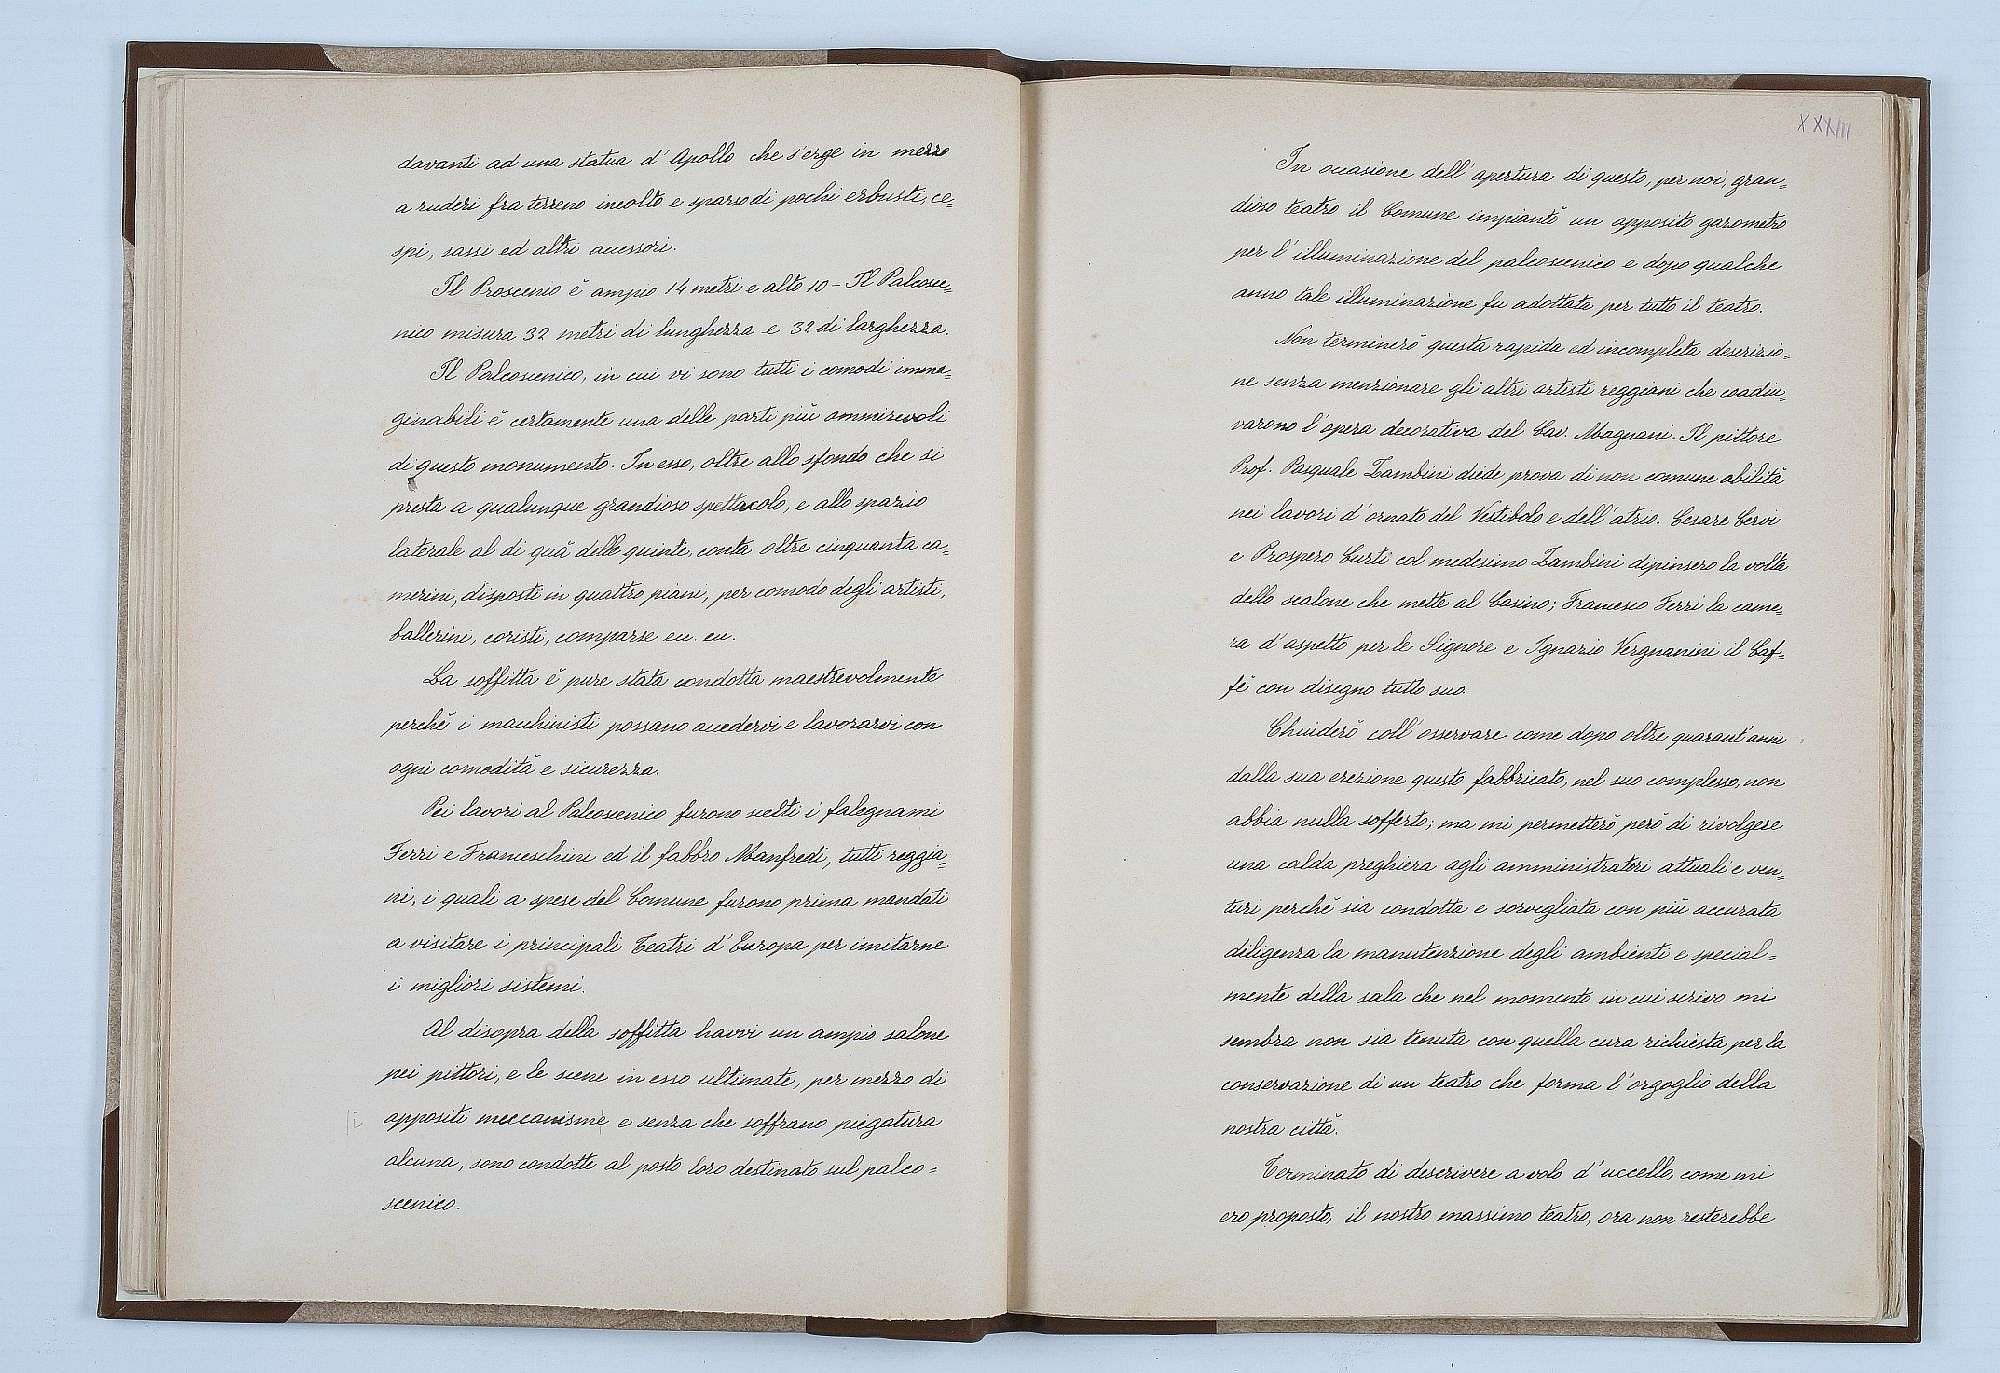 davanti ad una statua d'Apollo che s'erge in mezzo
a ruderi fra terreno incolto e sparso di pochi erbusti, ce=
spi, sassi ed altri accessori.
Il Proscenio è ampio 14 metri e alto 10 - Il Palcosce=
nico misura 32 metri di lunghezza e 32 di larghezza.
Il Palcoscenico, in cui vi sono tutti i comodi imma=
ginabili è certamente una delle parti più ammirevoli
di questo monumento. In esso, oltre allo sfondo che si
presta a qualunque grandioso spettacolo, e allo spazio
laterale al di quà delle quinte, conta oltre cinquanta ca=
merini, disposti in quattro piani, per comodo degli artisti,
ballerini, coristi, comparse ecc. ecc.
La soffitta è pure stata condotta maestrevolmente
perchè i macchinisti possano accedervi e lavorarvi con
ogni comodità e sicurezza.
Pei lavori al Palcoscenico furono scelti i falegnami
Ferri e Franceschini ed il fabbro Manfredi, tutti reggia=
ni, i quali a spese del Comune furono prima mandati
a visitare i principali Teatri d'Europa per imitarne
i migliori sistemi.
Al disopra della soffitta havvi un ampio salone
pei pittori, e le scene in esso ultimate, per mezzo di
appositi meccanismi e senza che soffrano piegatura
alcuna, sono condotte al posto loro destinato sul palco=
scenico.
XXXIII
In occasione dell'apertura di questo, per noi, gran=
dioso teatro il Comune impiantò un apposito gazometro
per l'illuminazione del palcoscenico e dopo qualche
anno tale illuminazione fu adottata per tutto il teatro.
Non terminerò questa rapida ed incompleta descrizio=
ne senza menzionare gli altri artisti reggiani che coadiu=
varono l'opera decorativa del Cav. Magnani. Il pittore
Prof. Pasquale Zambini diede prova di non comune abilità
nei lavori d'ornato del Vestibolo e dell'atrio. Cesare Cervi
e Prospero Curti col medesimo Zambini dipinsero la volta
dello scalone che mette al Casino; Francesco Ferri la came=
ra d'aspetto per le Signore e Ignazio Vergnanini il Caf=
fè con disegno tutto suo.
Chiuderò coll'osservare come dopo oltre quarant'anni
dalla sua erezione questo fabbricato, nel suo complesso, non
abbia nulla sofferto; ma mi permetterò però di rivolgere
una calda preghiera agli amministratori attuali e ven=
turi perchè sia condotta e sorvegliata con più accurata
diligenza la manutenzione degli ambienti e special=
mente della sala che nel momento in cui scrivo mi
sembra non sia tenuta con quella cura richiesta per la
conservazione di un teatro che forma l'orgoglio della
nostra città.
Terminato di discrivere a volo d'uccello, come mi
ero proposto, il nostro massimo teatro, ora non resterebbe